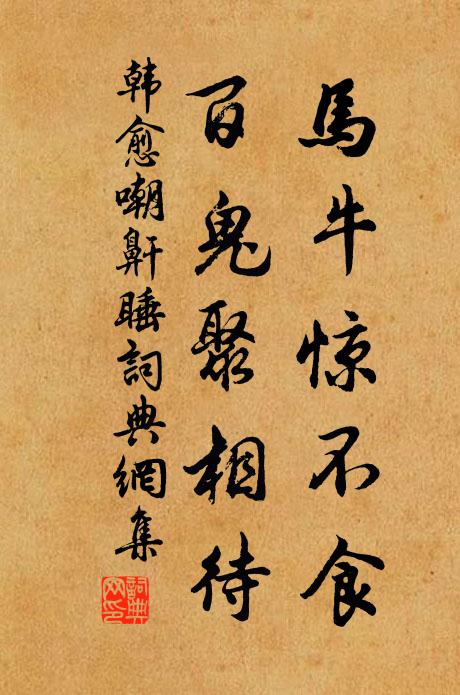 馬牛惊不食
百鬼聚相待
韩愈嘲鼾睡詞典網集
詞典网印